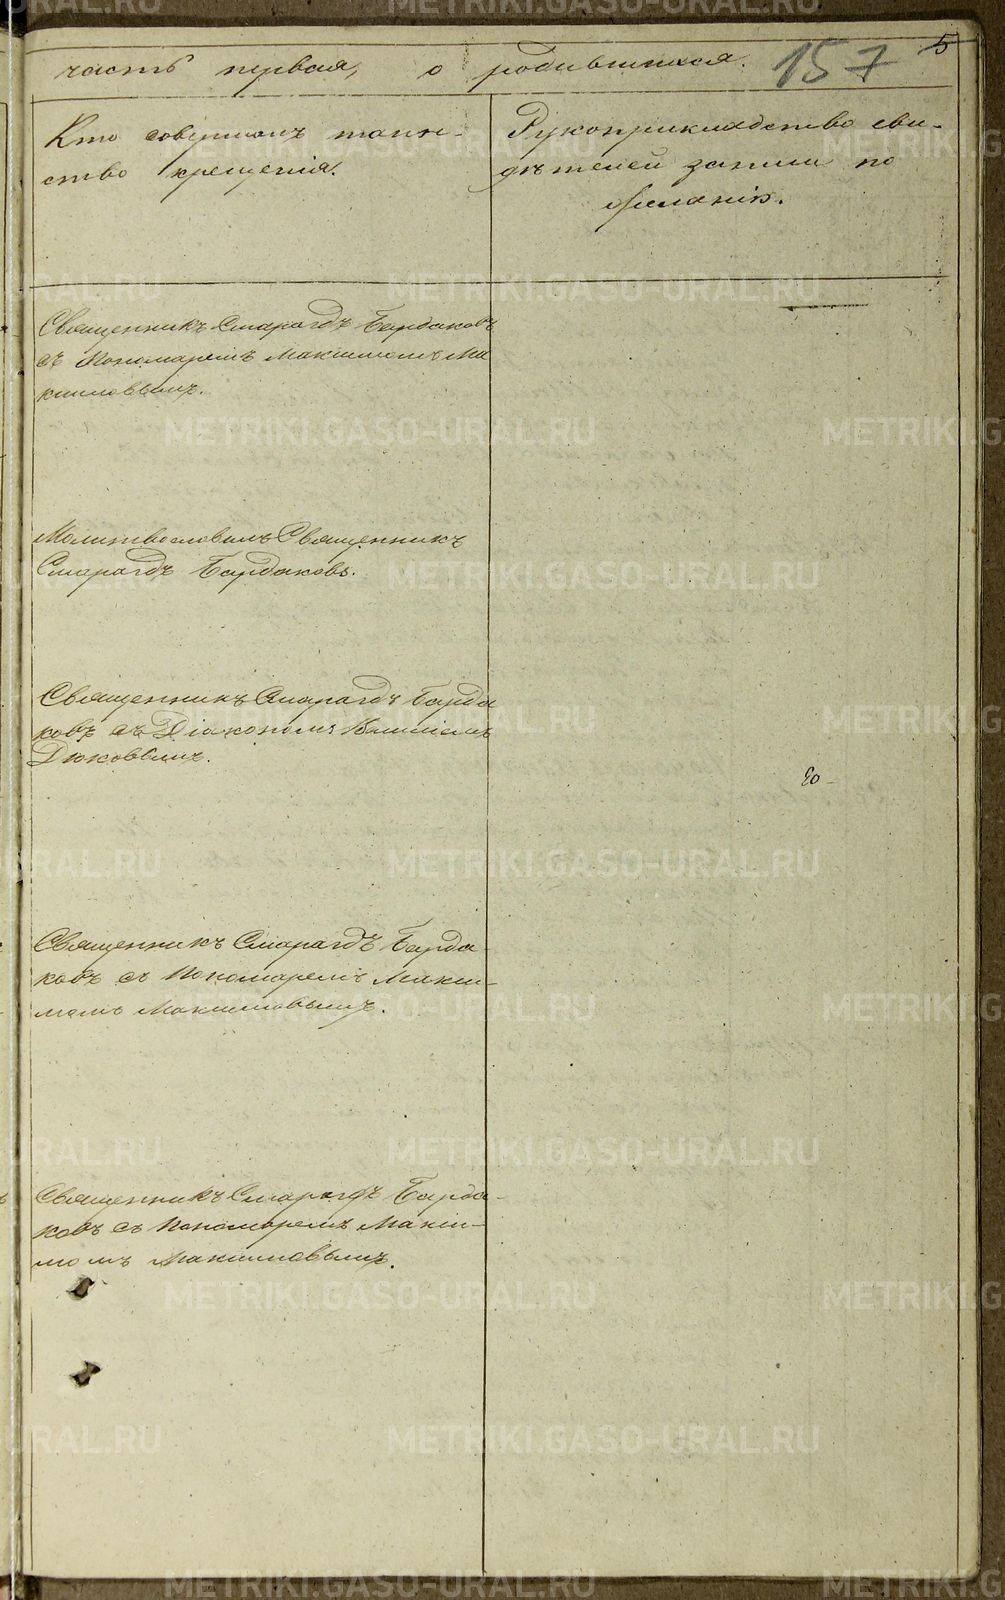 часть первая, о родившихся. 157 5
Кто совершалъ таин-
ство крещенія.
Рукоприкладство сви-
дѣтелей записи по
желанію.
Священникъ Смарагдъ Бардаковъ
съ Пономаремъ Максимомъ Ма
ксимовымъ.
Молитвословилъ Священникъ
Смарагдъ Бардаковъ.
Священникъ Смарагдъ Барда
ковъ съ Діакономъ
Дюковымъ.
Священникъ Смарагдъ Барда-
ковъ съ Пономаремъ Макси-
момъ Максимовымъ.
Священникъ Смарагдъ Барда-
ковъ съ Пономаремъ Макси-
момъ Максимовымъ.
METRIKI.GASO-URAL.RU